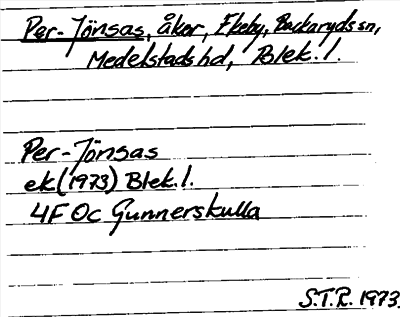 Per-Jönsas, åker, Ekeby, Backaryds sn,
Medelstads hd, Blek. l.
Per-Jönsas
ek. (1973) Blek. l.
4F 0c Gunnerskulla
S.T.R. 1973.